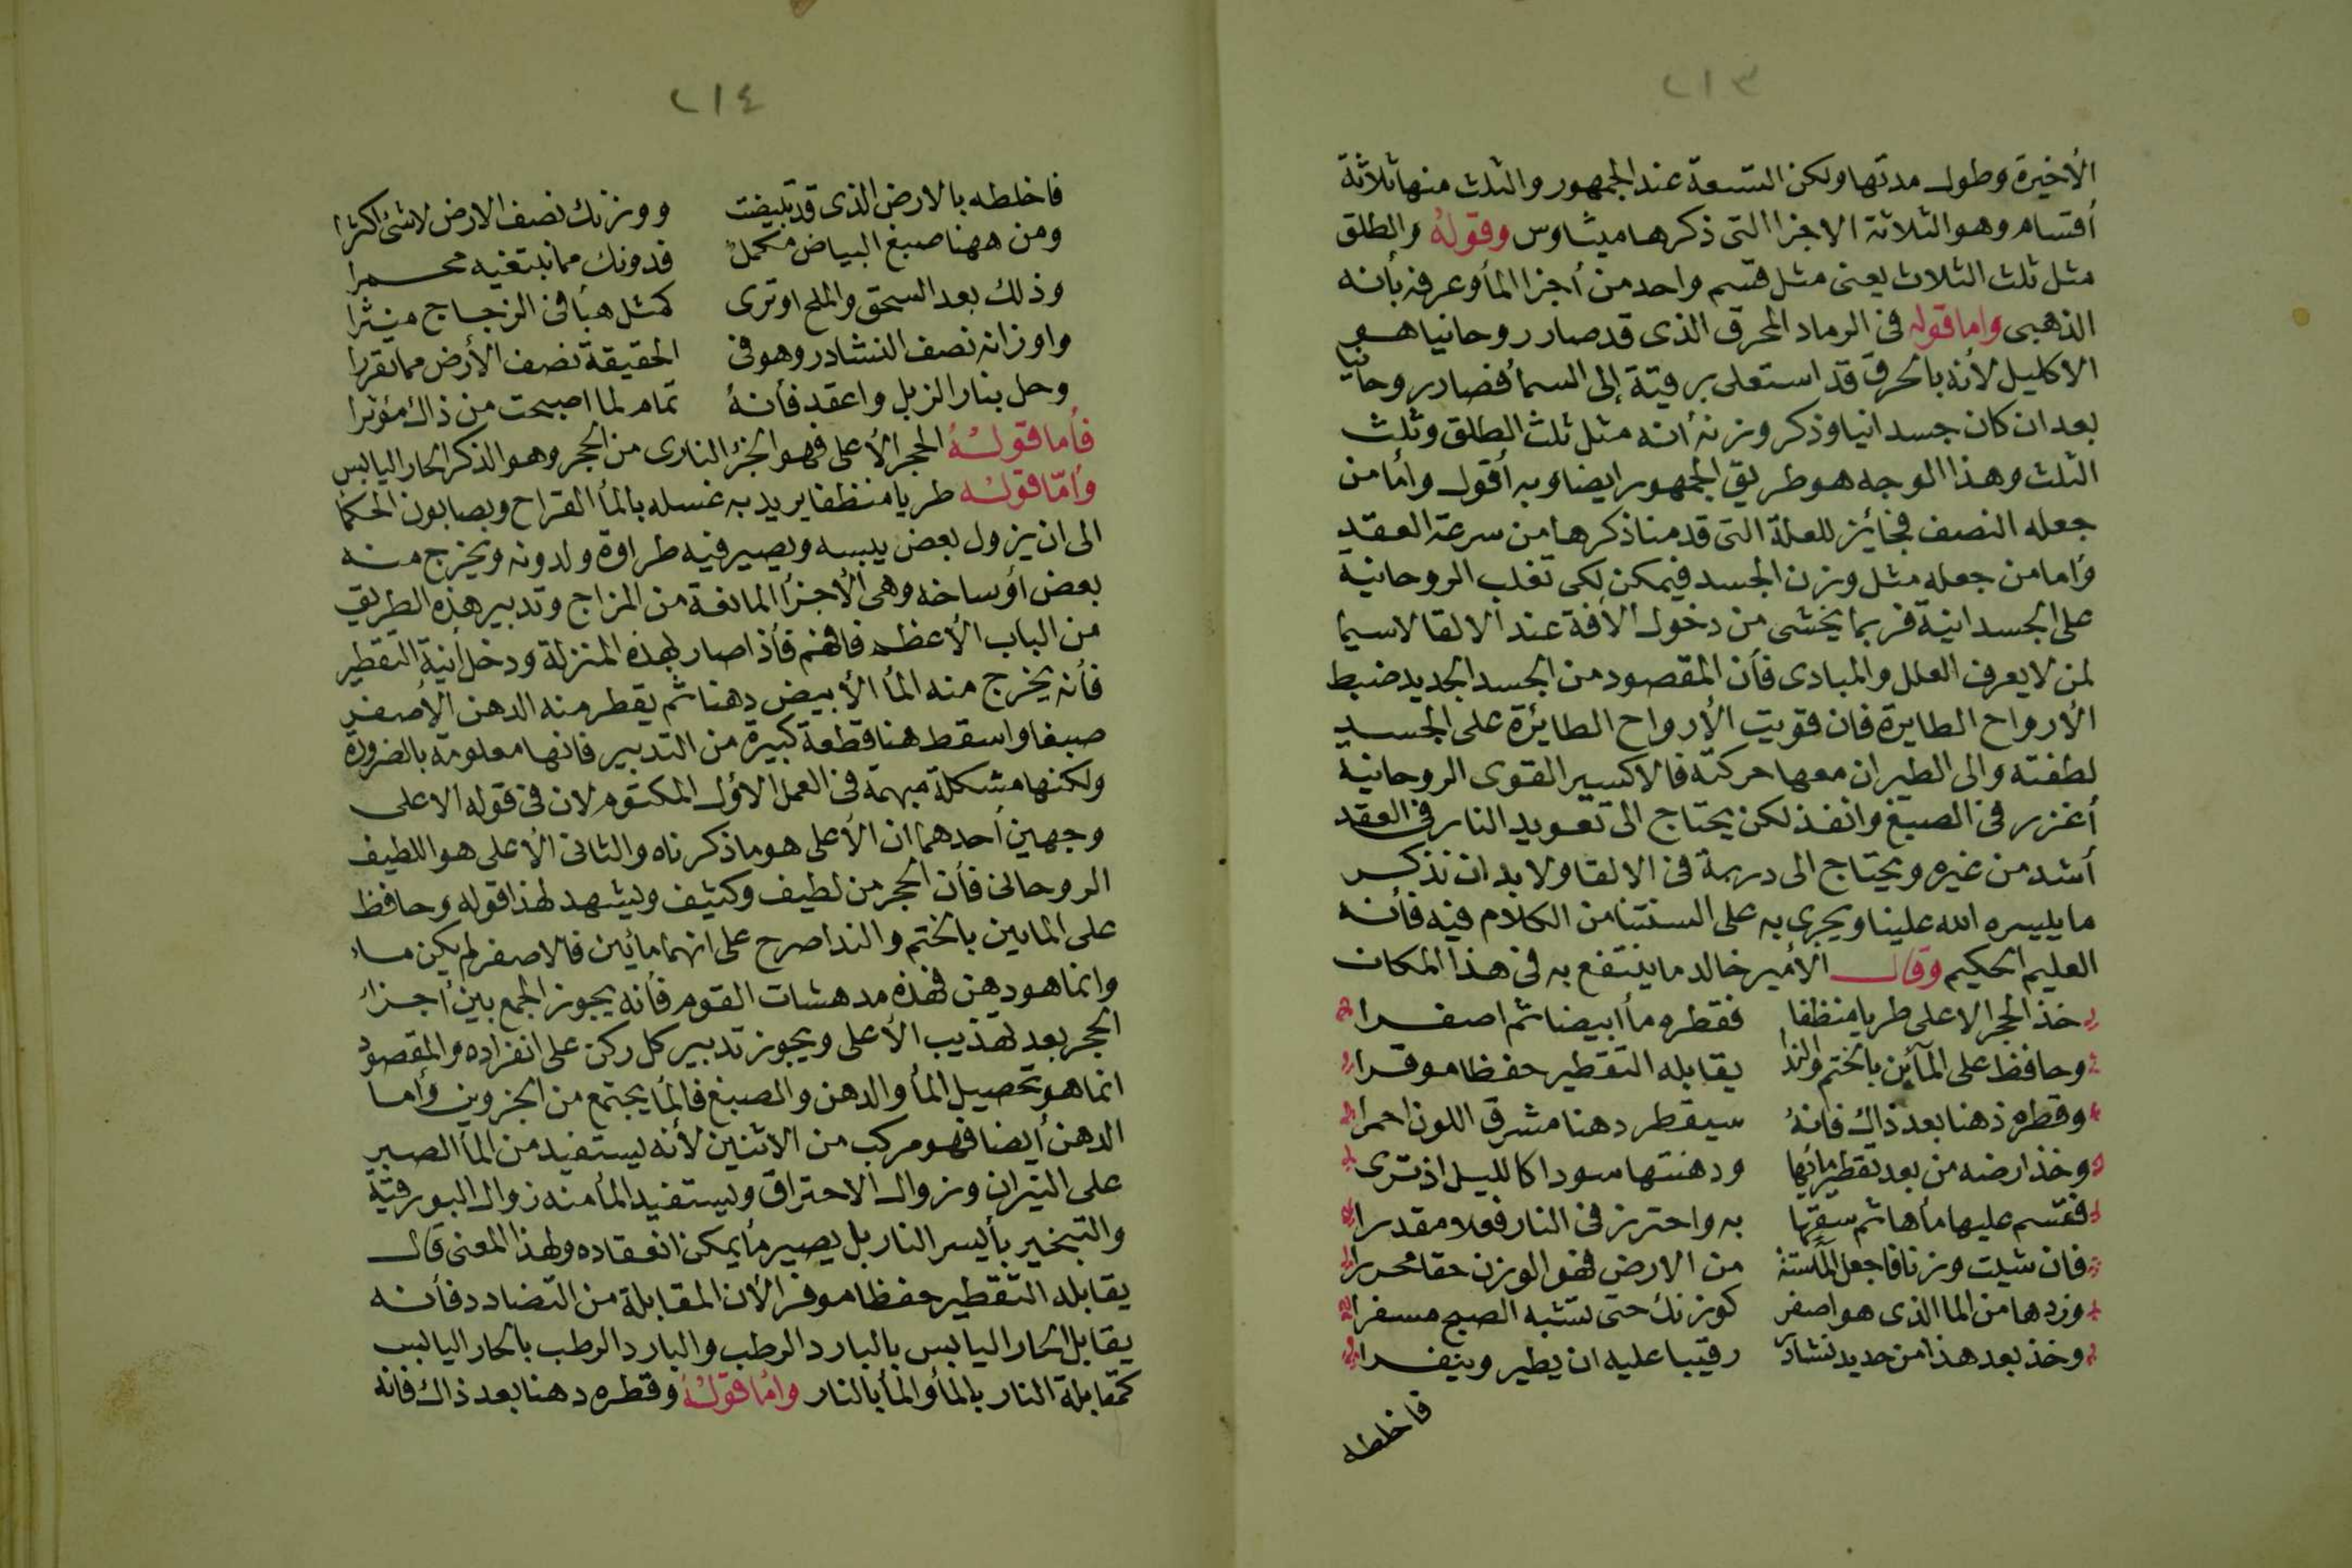 ٢١٣
الأخيرة وطول مدتها ولكن التسعة عند الجمهور والثلث منها ثلاثة
أقسام وهو الثلاثة الاجزا التى ذكرها ميثاوس وقوله والطلق
مثل ثلث الثلاث يعنى مثل قسم واحد من أجزا المأ وعرفه بأنه
الذهبى واما قوله فى الرماد المحرق الذى قد صار روحانيا هو
الاكليل لأنه بالحرق قد استعلى برقيتة إلى السمأ فصار روحانيا
بعد ان كان جسدانيا وذكر وزنه أنه مثل ثلث الطلق وثلث
الثلث وهذا الوجه هو طريق الجمهور ايضا وبه أقول وأما من
جعله النصف فجائز للعلة التى قدمنا ذكرها من سرعة العقد
وأما من جعله مثل وزن الجسد فيمكن لكى تغلب الروحانية
على الجسدانية فربما يخشى من دخول الأفة عند الالقا لاسيما
لمن لا يعرف العلل والمبادى فأن المقصود من الجسد الجديد ضبط
الأرواح الطايرة فان قويت الأرواح الطائرة على الجسد
لطفته والى الطيران معها حركته فالاكسير القوى الروحانية
أغزر فى الصبغ وانفذ لكن يحتاج الى تعويد النار فى العقد
أشد من غيره ويحتاج الى دربة فى الالقا ولا بد ان نذكر
ما ييسره الله علينا ويجرى به على السنتنا من الكلام فيه فأنه
العليم الحكيم وقال الأمير خالد ما ينتفع به فى هذا المكان
خذ الحجر الاعلى طريا منظفا فقطره مأ أبيضا ثم اصفرا
وحافظ على المآئين بالختم والندا يقابله التقطير حفظا موفرا
وقطره ذهنا بعد ذاك فانهُ سيقطر دهنا مشرق اللون احمرا
وخذ ارضه من بعد تقطير مائها ودهنتها سودا كالليل اذ ترى
فقسم عليها مأها ثم سقها به واحترز فى النار فعلا مقدرا
فان شيت وزنا فاجعل المأ ستة من الارض فهو الوزن حقا محررا
وزدها من الما الذى هو اصفر كوزنك حتى تشبه الصبح مسفرا
وخذ بعد هذا من حديد نشادر رقيبا عليه ان يطير وينفرا
فاخلطه
٢١٤
فاخلطه بالارض الذى قد تبيضت ووزنك نصف الارض لا شئ اكثرا
ومن ههنا صبغ البياض مكمل فدونك مما نبتغيه محمرا
وذلك بعد السحق والملح او ترى كمثل هبأ فى الزجاج منثرا
واوزانه نصف النشادر وهو فى الحقيقة نصف الأرض مما تقررا
وحل بنار الزبل واعقد فأنهُ تمام لما اصبحت من ذاك مؤثرا
فأما قولهُ الحجر الأعلى فهو الجزء النارى من الحجر وهو الذكر الحار اليابس
وأمّا قوله طريا منظفا يريد به غسله بالمأ القراح وبصابون الحكما
الى ان يزول بعض يبسه ويصير فيه طراوة ولدونه ويخرج منه
بعض أوساخه وهى الأجزأ المانعة من المزاج وتدبير هذه الطريق
من الباب الأعظم فافهم فأذا صار لهذه المنزلة ودخل أنية التقطير
فأنه يخرج منه المأ الأبيض دهنا ثم يقطر منه الدهن الأصفر
صبغا واسقط هنا قطعة كبيرة من التدبير فانها معلومة بالضرورة
ولكنها مشكلة مبهمة فى العمل الأول المكتوم لان فى قوله الاعلى
وجهين أحدهما ان الأعلى هو ما ذكرناه والثانى الأعلى هو اللطيف
الروحانى فأن الحجر من لطيف وكثيف ويشهد لهذا قوله وحافظ
على المايين بالختم والندا صرح على انهما مائين فالاصفر لم يكن ماء
وانما هو دهن فهذه مدهشات القوم فأنه يجوز الجمع بين أجزاء
الحجر بعد تهذيب الأعلى ويجوز تدبير كل ركن على انفراده والمقصود
انما هو تحصيل المأ والدهن والصبغ فالمأ يجتمع من الجزوين وأما
الدهن أيضا فهو مركب من الاثنين لأنه يستفيد من المأ الصبر
على النيران وزوال الاحتراق ويستفيد المأ منه زوال البورقية
والتبخير بأيسر النار بل يصير مأ يمكن انعقاده ولهذا المعنى قال
يقابله التقطير حفظا موفرا لأن المقابلة من التضادد فأنه
يقابل الحار اليابس بالبارد الرطب والبارد الرطب بالحار اليابس
كمقابلة النار بالمأ والمأ بالنار وأما قولهُ وقطره دهنا بعد ذاك فانه